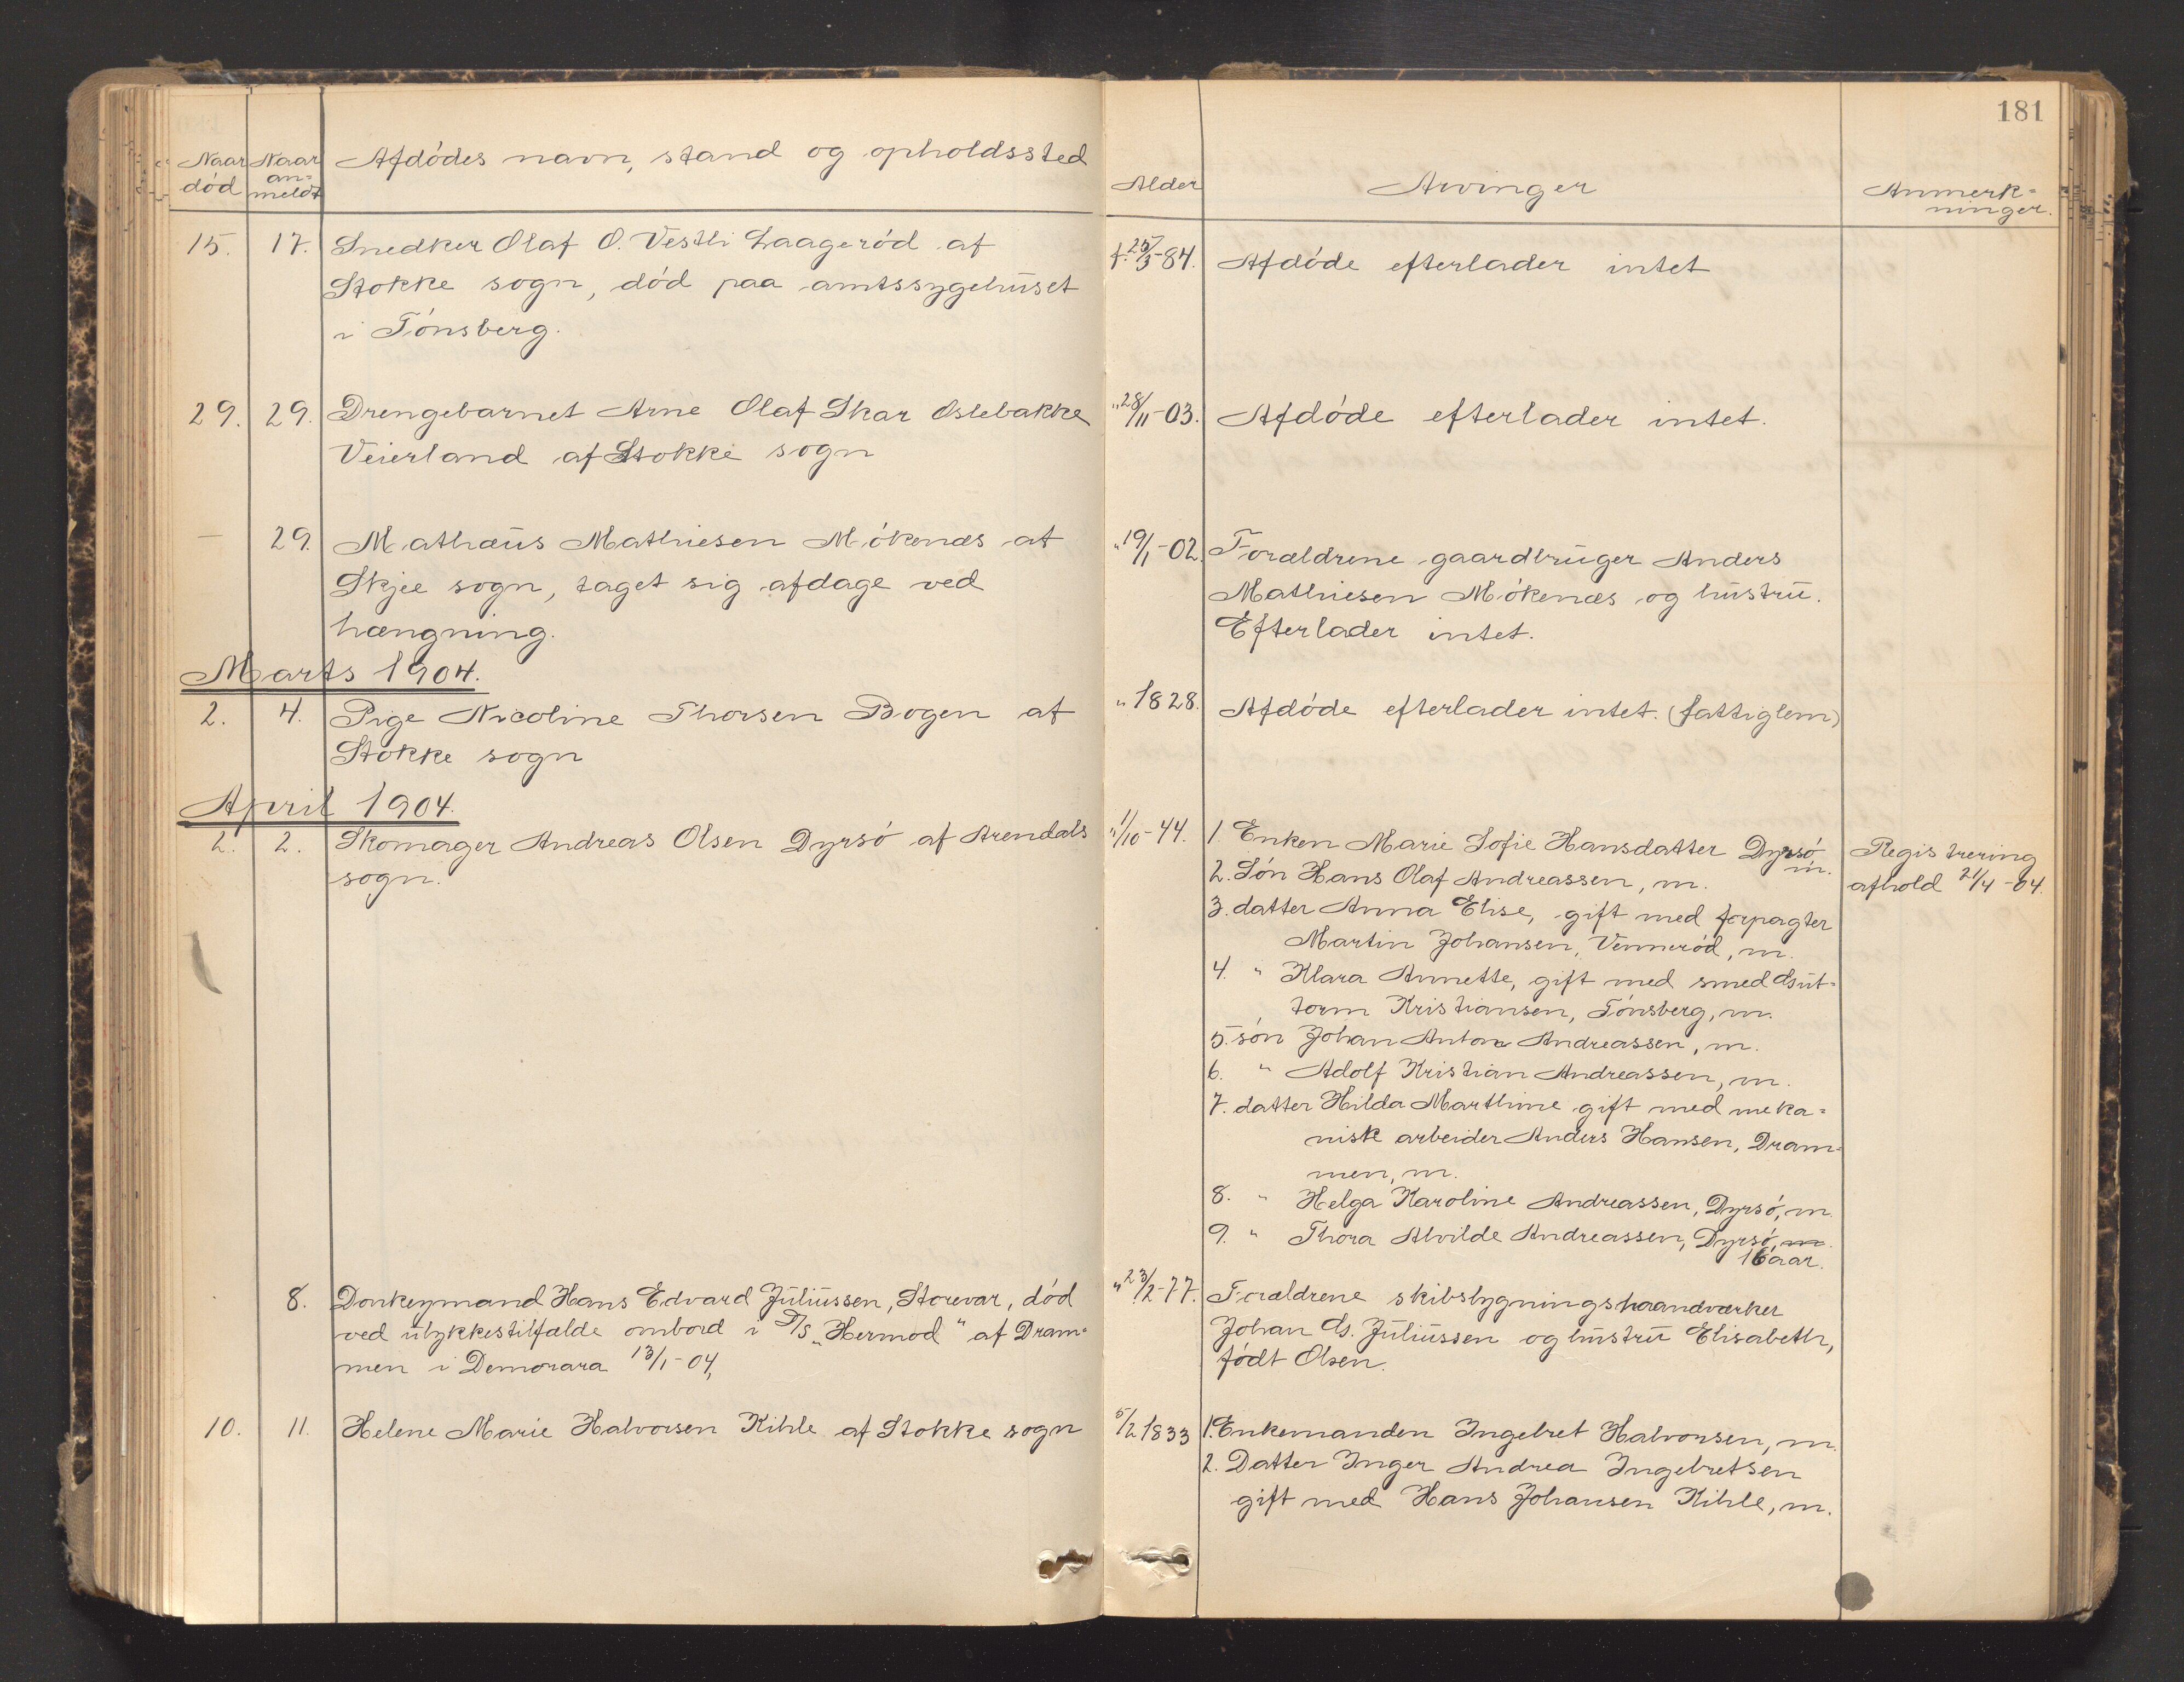 181
Naar død
Naar an=meldt
Afdødes navn, stand og opholdssted
Alder
Arvinger
Anmerk=ninger.
15. 17. Snedker Olaf O. Vestli Laagerød af
Stokke sogn, død paa amtssygehuset
i Tønsberg.
f. 25/3-84. Afdøde efterlader intet
29. 29. Drengebarnet Arne Olaf Skar Oslebakke
Veierland af Stokke sogn
" 28/11-03. Afdøde efterlader intet.
— 29. Mathæus Mathiesen Møkenæs af
Skjee sogn, taget sig afdage ved
hængning.
" 19/1-02. Forældrene gaardbruger Anders
Mathiesen Møkenæs og hustru.
Efterlader intet.
Marts 1904.
2. 4. Pige Nicoline Thorsen Bogen af
Stokke sogn
" 1828. Afdøde efterlader intet. (fattiglem)
April 1904.
2. 2. Skomager Andreas Olsen Dyrsø af Arendals
sogn.
" 1/10-44. 1. Enken Marie Sofie Hansdatter Dyrsø
m.
2. Søn Hans Olaf Andreassen, m.
3. datter Anna Elise, gift med forpagter
Martin Johansen, Vennerød, m.
4. " Klara Annette, gift med smed Gut=
torm Kristiansen, Tønsberg, m.
5. søn Johan Anton Andreassen, m.
6. " Adolf Kristian Andreassen, m.
7. datter Hilda Marthine gift med meka=
nisk arbeider Anders Hansen, Dram=
men, m.
8. " Helga Karoline Andreassen, Dyrsø, m.
9. " Thora Alvilde Andreassen, Dyrsø, m.
16 aar.
Registrering
afhold 21/4-04.
8. Donkeymand Hans Edvard Juliussen, Storevar, død
ved ulykkestilfælde ombord i D/S „Hermod" af Dram=
men i Demorara 13/1-04,
" 23/2-77. Forældrene skibsbygningshaandværker
Johan G. Juliussen og hustru Elisabeth,
født Olsen.
10. 11. Helene Marie Halvorsen Kihle af Stokke sogn
5/2 1833 1. Enkemanden Ingebret Halvorsen, m.
2. Datter Inger Andrea Ingebretsen
gift med Hans Johansen Kihle, m.